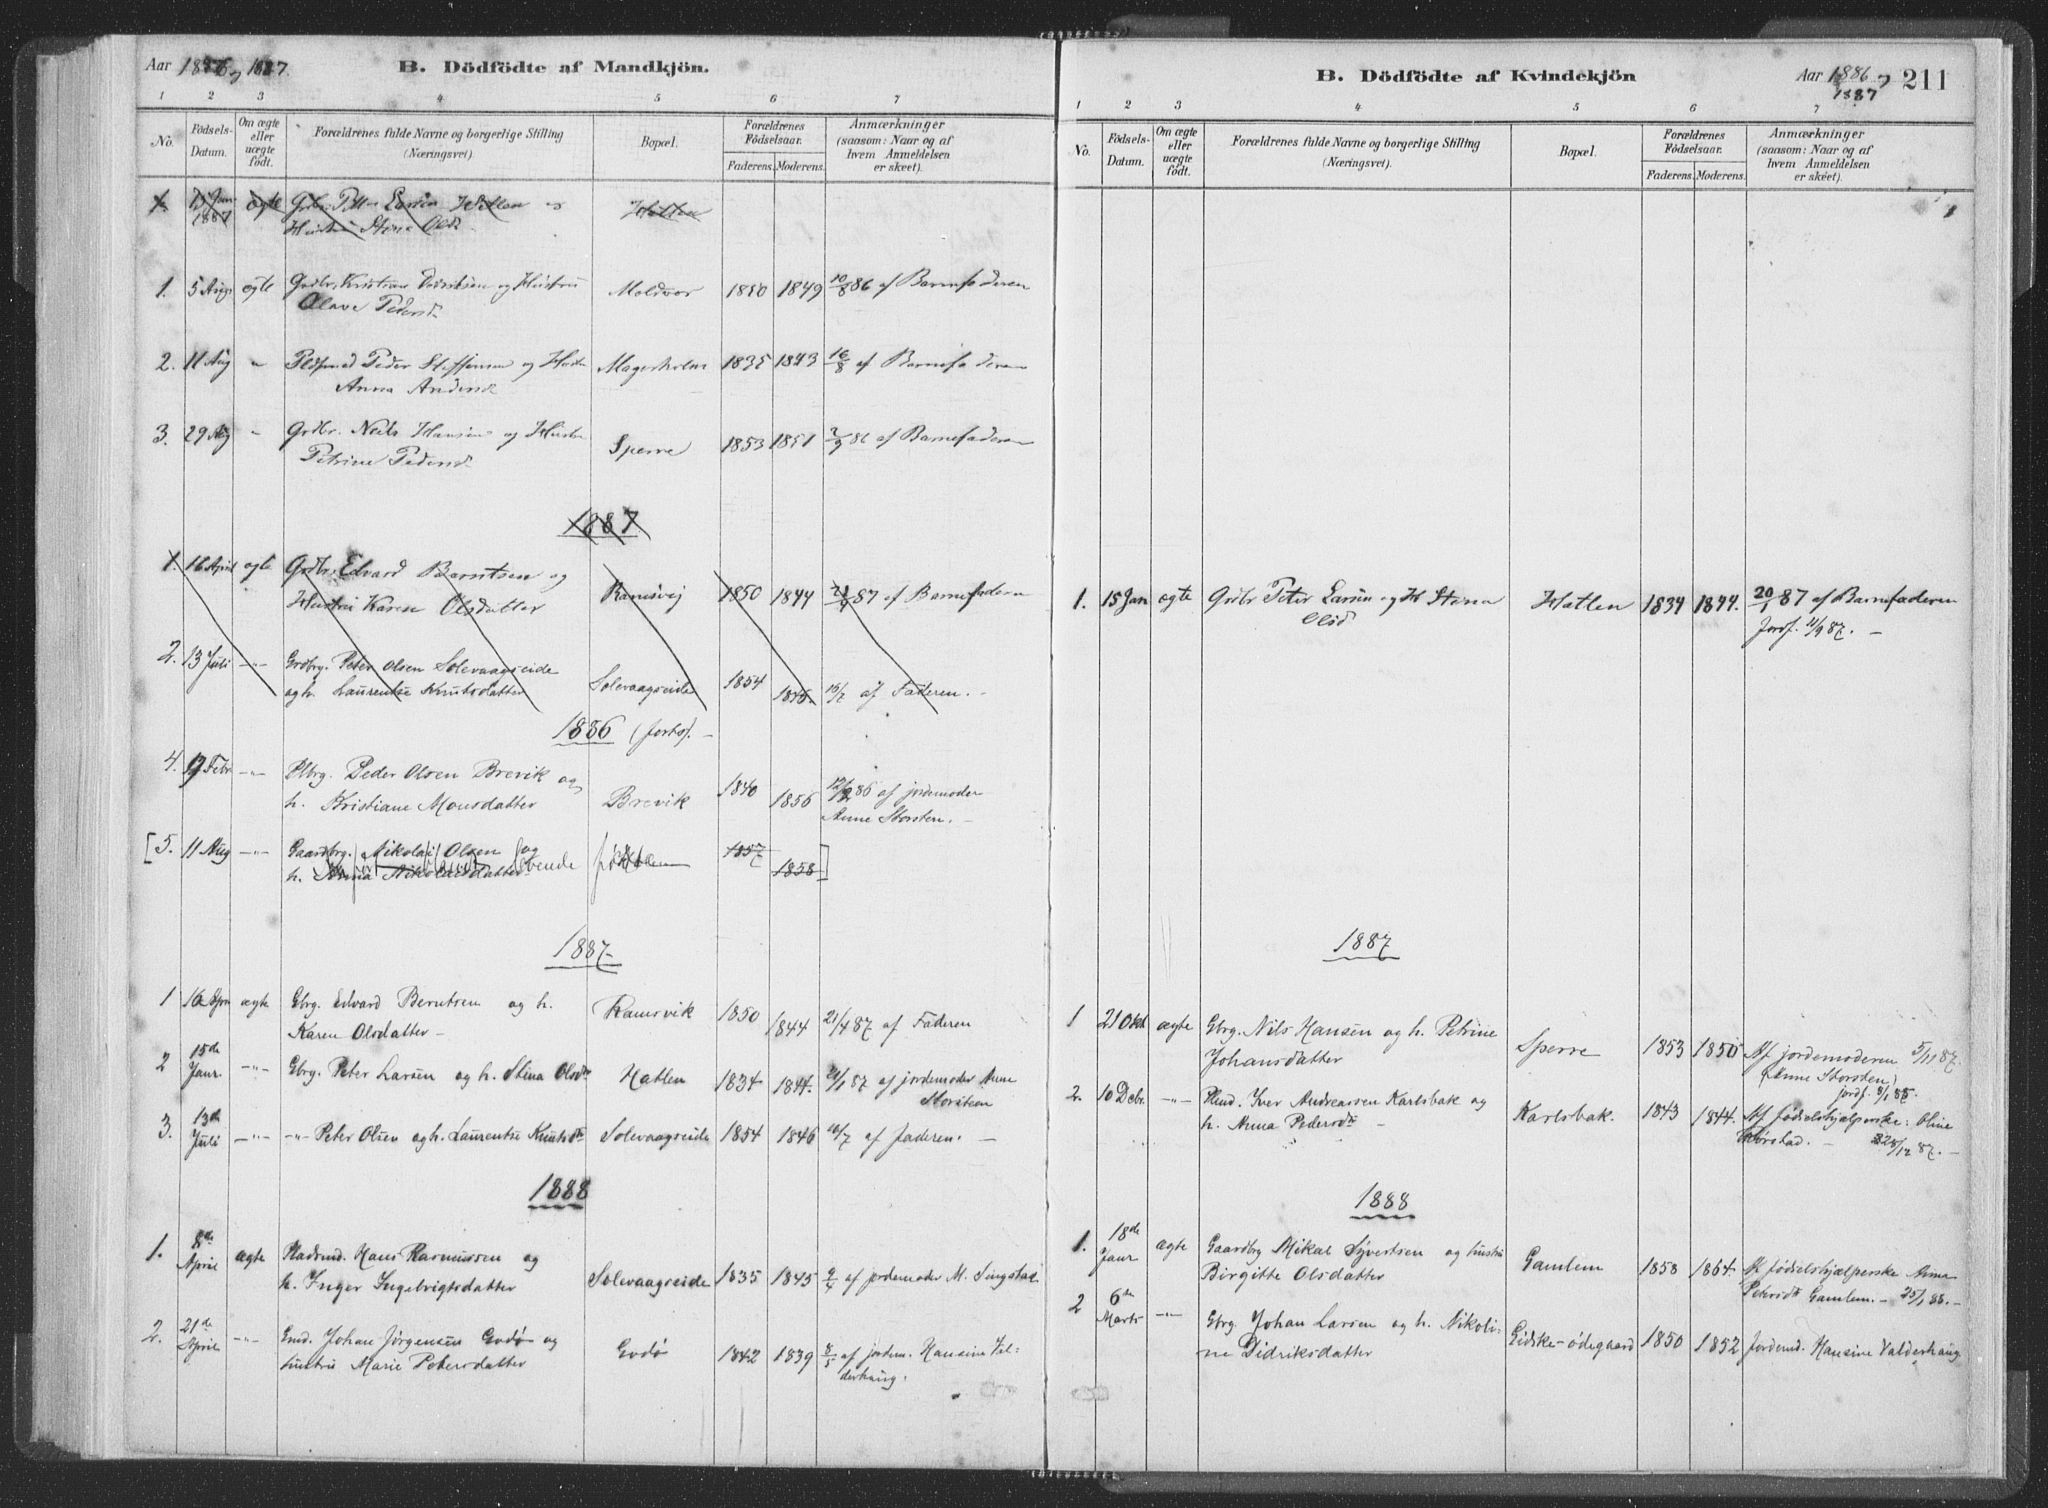 Aar 1886 og 1887.
B. Dödfödte af Mandkjön.
1 2 3 4 5 6 7
No. Födsels-Datum. Om ægte eller uægte födt. Forældrenes fulde Navne og borgerlige Stilling (Næringsvei). Bopæl. Forældrenes Födselsaar. Faderens. Moderens. Anmærkninger (saasom: Naar og af hvem Anmeldelsen er skeet).
1. 15 Jan 1887 ægte Grdbr. Peter Larsen Hatlen og Hatlen
Hustru Stina Olsd.
1. 5 Aug. ægte Grdbr. Kristian Didriksen og Hustru Moldvær 1850 1849 10/8 86 af Barnefaderen
Olave Pedersd.
2. 11 Aug " Pldsmd Peder Steffensen og Hustru Magerholm 1835 1843 16/8 af Barnefaderen
Anna Andersd.
3. 29 Aug " Grdbr. Nils Hansen og Hustru Sperre 1853 1851 2/9 86 af Barnefaderen
Petrine Pedersd.
1887
1. 16 April ægte Grdbr. Edvard Berntsen og Ramsvig 1850 1844 21/4 87 af Barnefaderen
Hustru Karen Olsdatter
2. 13 Juli -"- Grdbrg. Peter Olsen Solevaagseide Solevaagseide 1854 1846 15/7 af Faderen. -
og h. Laurentse Knutsdatter
1886 (forts). -
4. 17 Febr. -"- Plbrg. Peder Olsen Brevik og Brevik 1840 1856 af jordemoder
h. Kristiane Monsdatter Anne Storsten. -
[5. 11 Aug -"- Gaardbrg. Nikolai Olsen og 1857 1858]
h. Anna Nikolaisdatter levende født
1887
1 16 Apri ægte Gbrg. Edvard Berntsen og h. Ramsvik 1850 1844 21/4 87 af Faderen
Karen Olsdatter -
2 15de Janr. -"- Gbrg. Peter Larsen og h. Stina Olsdtr Hatlen 1834 1844. 20/1 87 af jordemoder Anne
Storsteen
3. 13de Juli -"- -"- Peter Olsen og h. Laurentse Knutsdtr Solevaagseide 1854 1846 16/7 af Faderen. -
1888
1. 8de April ægte Pladsmd. Hans Rasmussen og Solevaagseide 1835 1845 9/4 af jordemoder M. Singstad
h. Inger Ingebrigtsdatter
2. 21de April -"- Gmd. Johan Jörgensen Godø og Godø 1842 1839 8/5 af jordem. Hansine Val-
hustru Marie Petersdatter derhaug.
B. Dödfödte af Kvindekjön
Aar 1886 og 1887
211
1 2 3 4 5 6 7
No. Födsels-Datum. Om ægte eller uægte födt. Forældrenes fulde Navne og borgerlige Stilling (Næringsvei). Bopæl. Forældrenes Födselsaar. Faderens. Moderens. Anmærkninger (saasom: Naar og af hvem Anmeldelsen er skéet).
1. 15 Jan ægte Grdbr Peter Larsen og H Stina Hatlen 1834 1844. 20/1 87 af Barnefaderen
Olsd Jordf. 11/9 87. -
1887
1 21 Okt ægte Gbrg. Nils Hansen og h. Petrine Sperre 1853 1850 Af jordemoderen 5/11 87.
Johansdatter (Anne Storsten)
jordf. 8/1 88.
2. 10 Debr. -"- Plmd. Iver Andreassen Karlsbak og Karlsbak. 1843 1844. Af fødselshjælperske: Oline
h. Anna Pedersdtr - 28/12 87. -
1888
1. 18de Janr ægte Gaardbrg Mikal Syvertsen og hustru Gamlem 1858 1864. Af fødselshjælperske Anna
Birgitte Olsdatter Petersdtr Gamlem. - 25/1 88. -
2 6te Marts -"- Gbrg. Johan Larsen og h. Nikoli- Gidske-ødegaard 1850 1852 Jordemd. Hansine Valderhaug
ne Didriksdatter